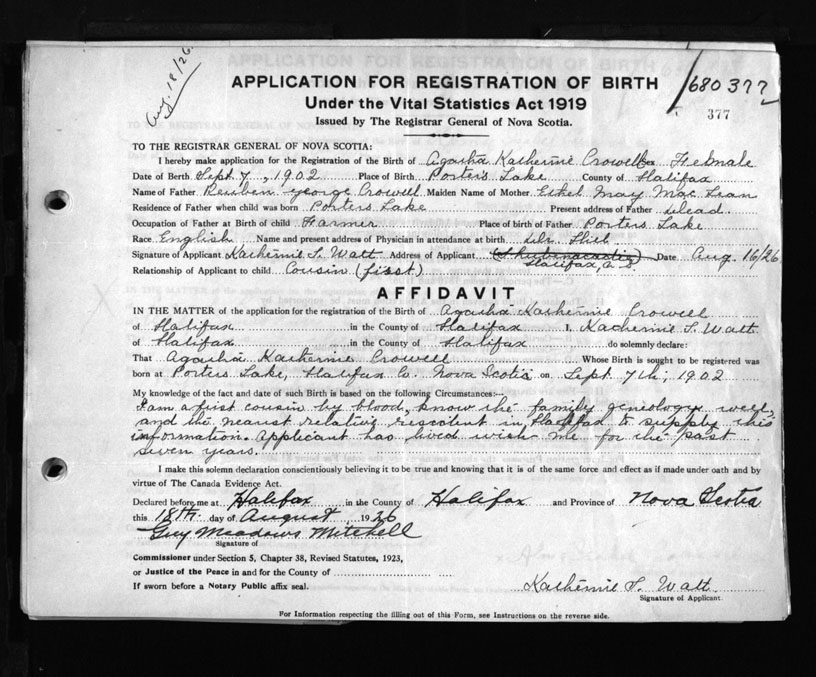 Aug. 18/26
680377
377
APPLICATION FOR REGISTRATION OF BIRTH
Under the Vital Statistics Act 1919
Issued by The Registrar General of Nova Scotia.
TO THE REGISTRAR GENERAL OF NOVA SCOTIA:
I hereby make application for the Registration of the Birth of Agatha Katherine Crowell Sex Female
Date of Birth Sept 7, 1902 Place of Birth Porters Lake County of Halifax
Name of Father Reuben George Crowell Maiden Name of Mother Ethel May Mac Lean
Residence of Father when child was born Porters Lake Present address of Father Dead.
Occupation of Father at Birth of child Farmer Place of birth of Father Porters Lake
Race English Name and present address of Physician in attendance at birth Dr.
Signature of Applicant Katherine S. Watt Address of Applicant (Shubenacadie) Date Aug. 16/26
Halifax, N.S.
Relationship of Applicant to child Cousin (first)
AFFIDAVIT
IN THE MATTER of the application for the registration of the Birth of Agatha Katherine Crowell
of Halifax in the County of Halifax I, Katherine S. Watt
of Halifax in the County of Halifax do solemnly declare:
That Agatha Katherine Crowell Whose Birth is sought to be registered was
born at Porters Lake, Halifax Co. Nova Scotia on Sept 7th, 1902
My knowledge of the fact and date of such Birth is based on the following Circumstances:—
I am a first cousin by blood, know the family geneology well,
and the nearest relative resident in Halifax to supply this
information. Applicant has lived with me for the past
seven years.
I make this solemn declaration conscientiously believing it to be true and knowing that it is of the same force and effect as if made under oath and by
virtue of The Canada Evidence Act.
Declared before me at Halifax in the County of Halifax and Province of Nova Scotia
this 18th day of August 1926
Guy Meadows Mitchell
Signature of
Commissioner under Section 5, Chapter 38, Revised Statutes, 1923,
or Justice of the Peace in and for the County of
If sworn before a Notary Public affix seal.
Katherine S. Watt.
Signature of Applicant.
For Information respecting the filling out of this Form, see Instructions on the reverse side.